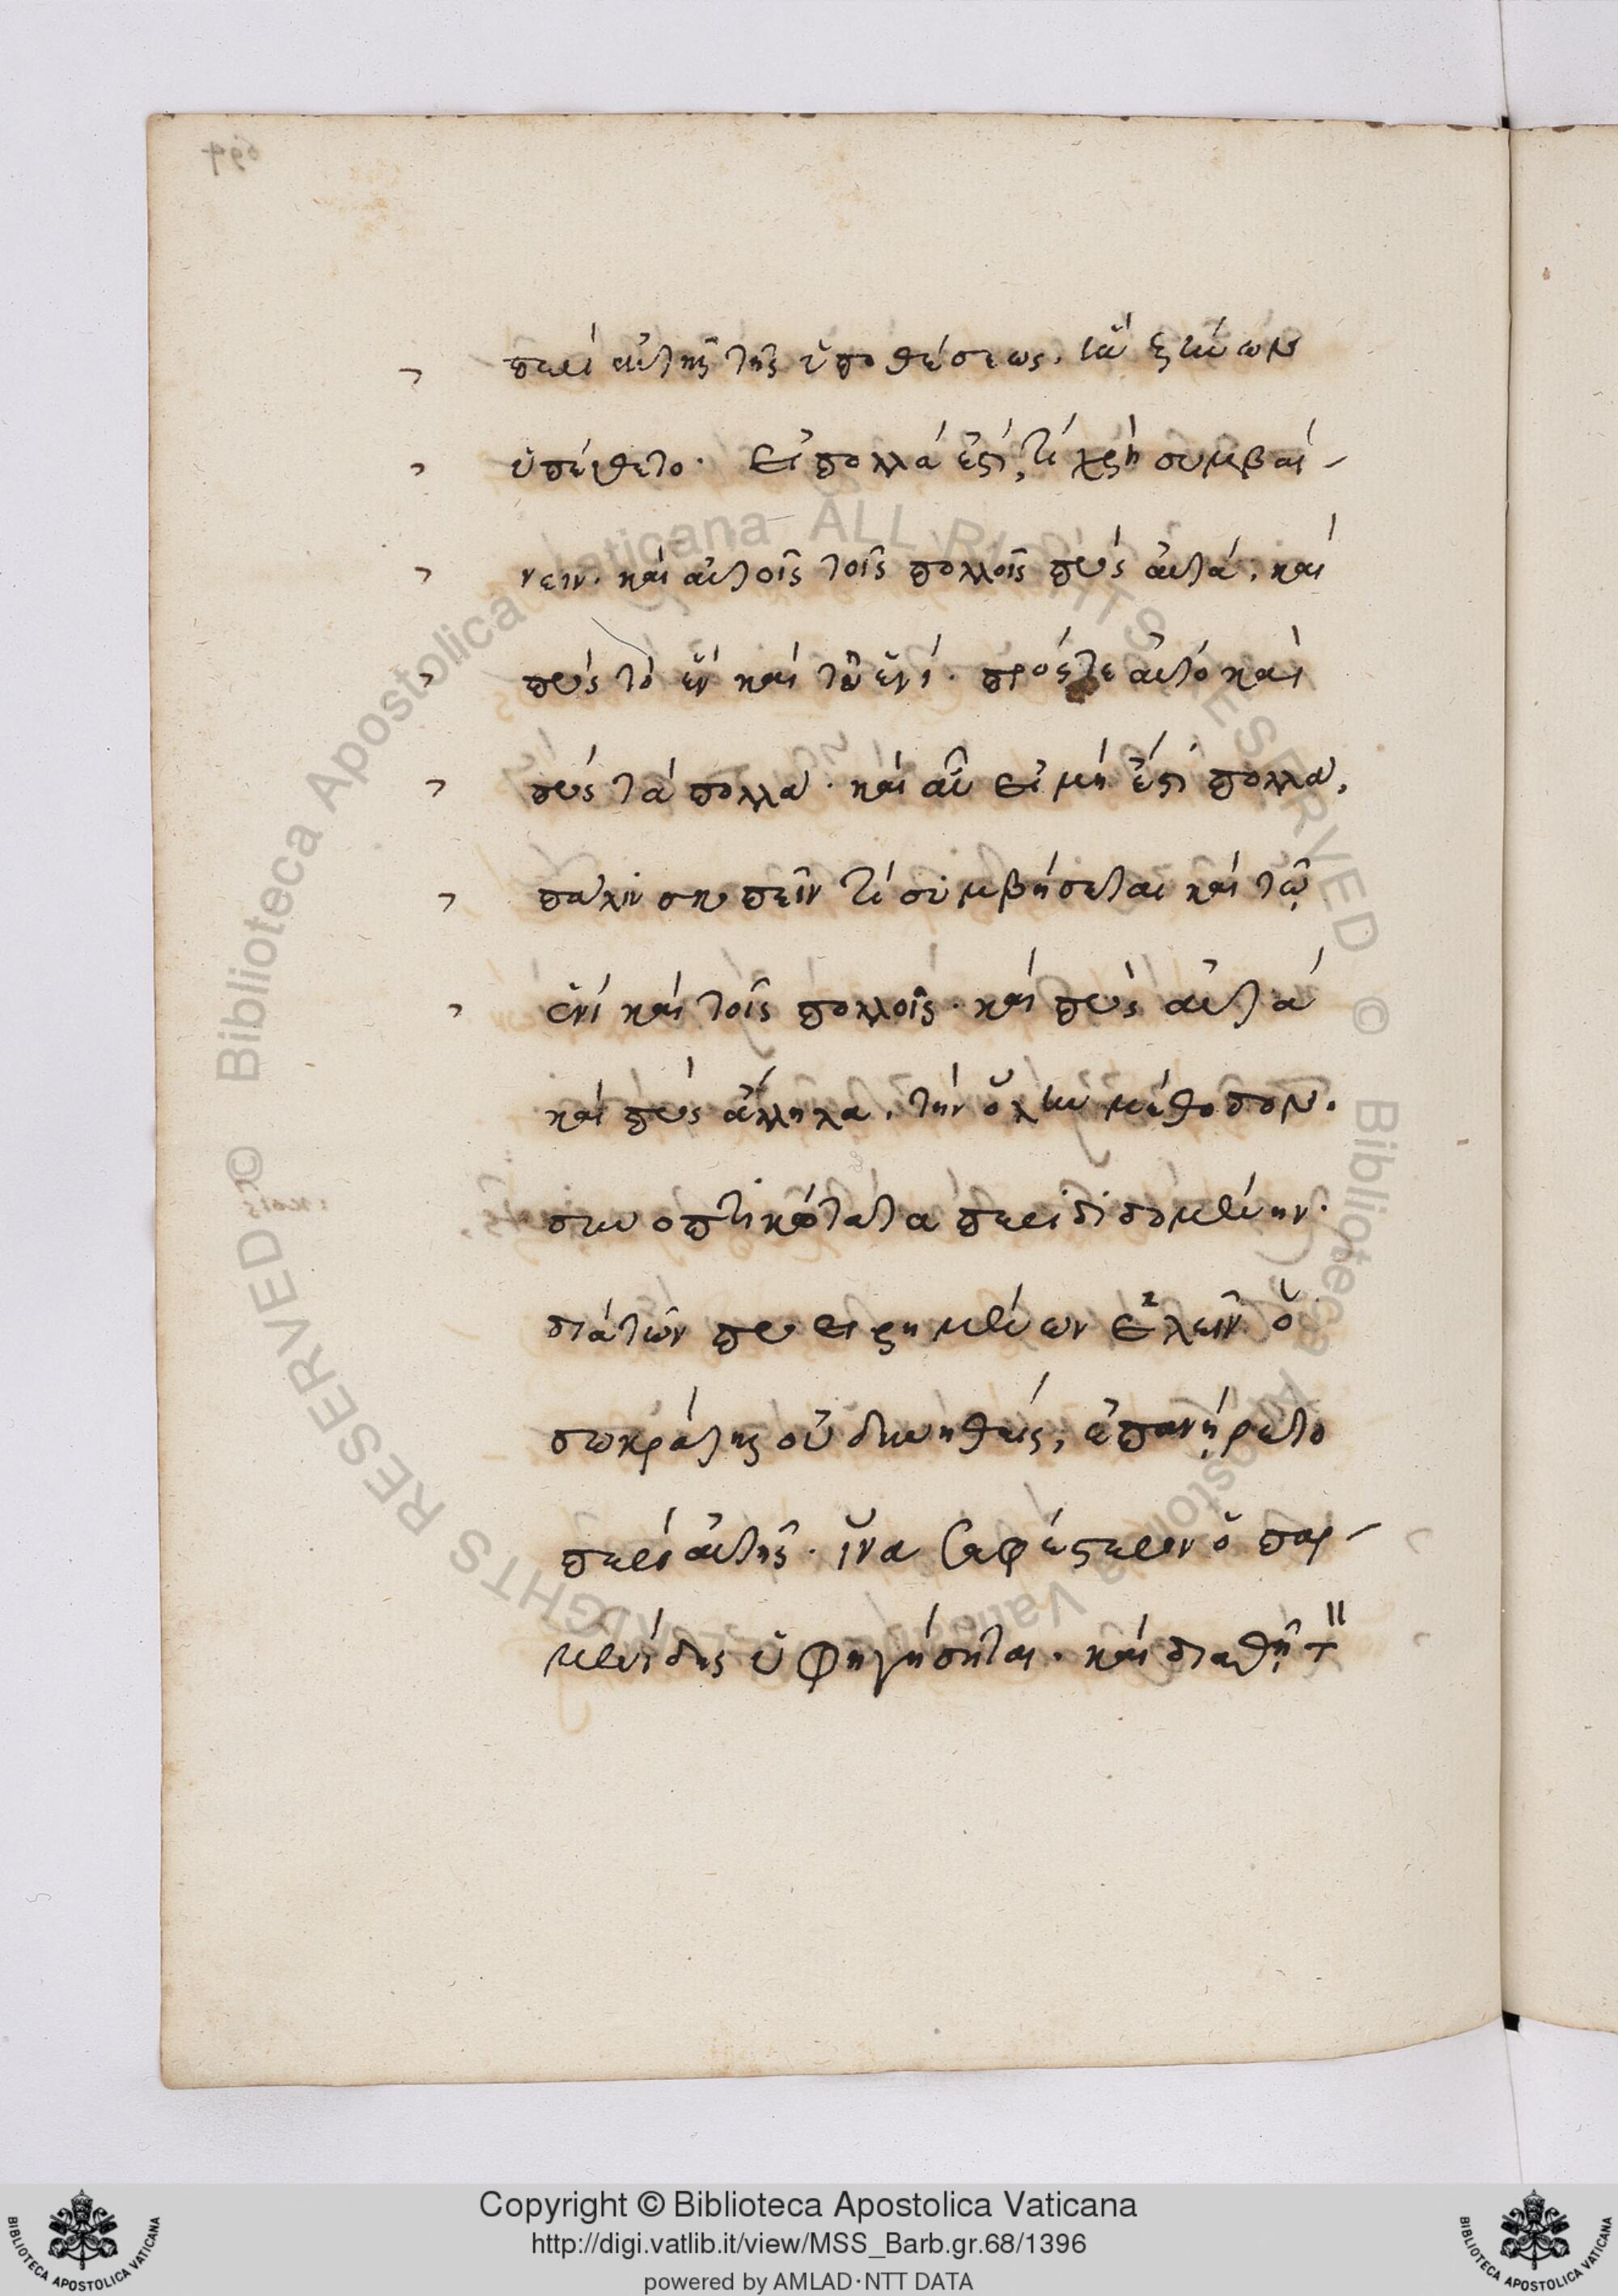 περὶ αὐτῆς τῆς ὑποθέσεως, ἣν ζήνων
ὑπέθετο. εἰ πολλά ἐστι, τί χρὴ συμβαί-
νειν. καὶ αὐτοῖς τοῖς πολλοῖς πρὸς αὐτά, καὶ
πρὸς τὸ ἓν καὶ τῷ ἑνὶ. πρός τε αὐτὸ καὶ
πρὸς τὰ πολλά. καὶ αὖ εἰ μή ἐστι πολλά,
πάλιν σκοπεῖν τί συμβήσεται καὶ τῷ
ἑνὶ καὶ τοῖς πολλοῖς. καὶ πρὸς αὐτὰ
καὶ πρὸς ἄλληλα. τὴν ὅλην μέθοδον.
συνοπτικώτατα παραδιδομένην.
διὰ τῶν προειρημένων ἑλεῖν ὁ
σωκράτης οὐ δυνηθείς, ἐπανήρετο
περὶ αὐτῆς. ἵνα σαφέστερον ὁ παρ-
μενίδης ὑφηγήσηται. καὶ διαθῇ τ
Copyright © Biblioteca Apostolica Vaticana
http://digi.vatlib.it/view/MSS_Barb.gr.68/1396
powered by AMLAD·NTT DATA
BIBLIOTECA APOSTOLICA VATICANA
BIBLIOTECA APOSTOLICA VATICANA